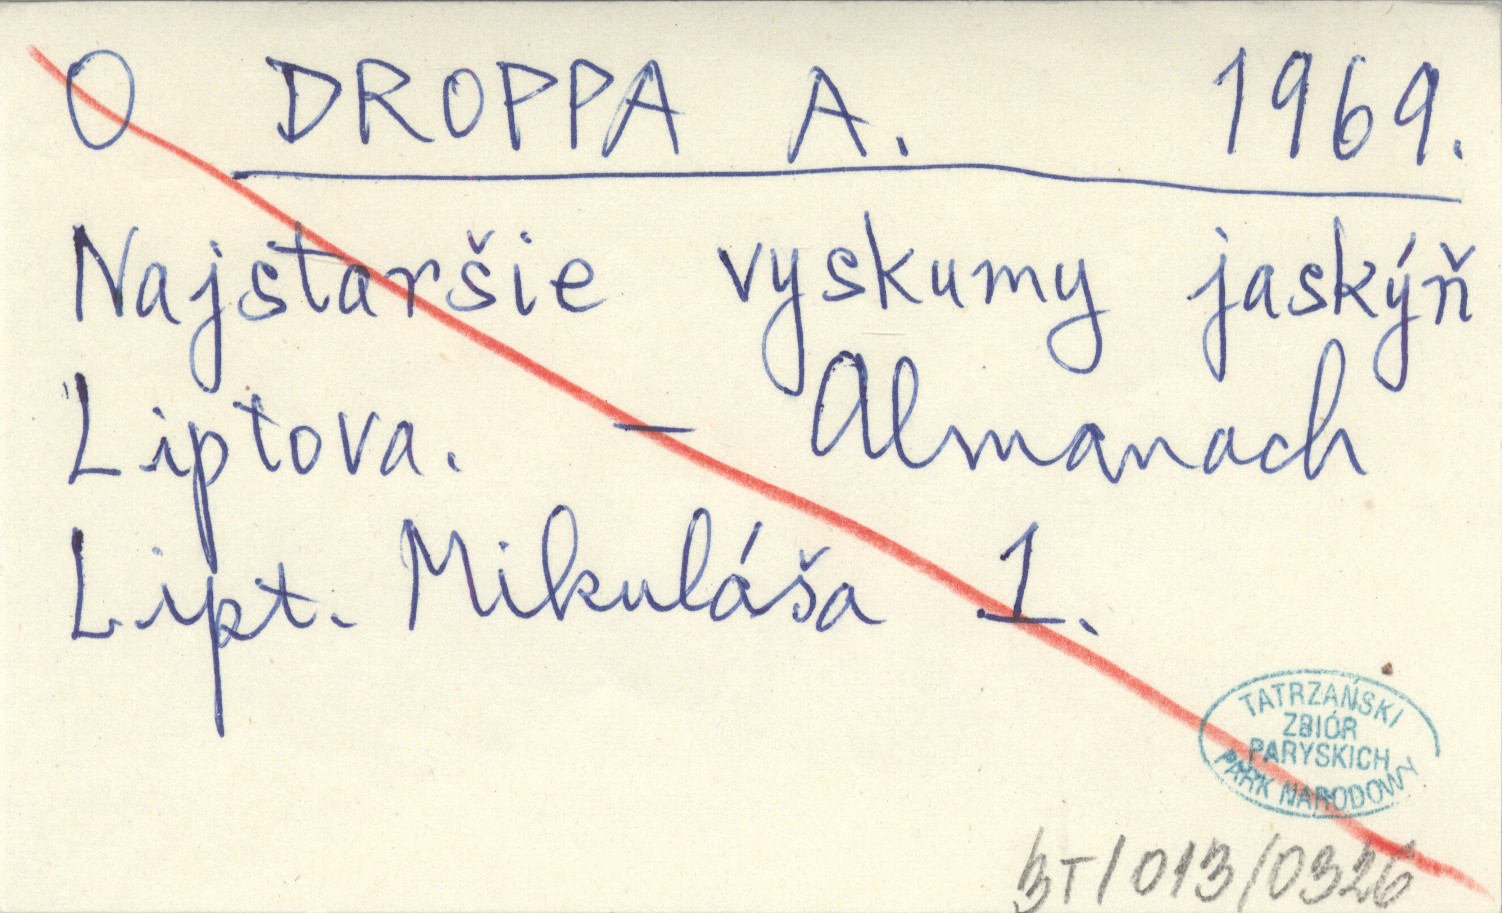 O DROPPA A. 1969.
Najstaršie vyskumy jaskýň
Liptova. – Almanach
Lipt. Mikuláša 1.
TATRZAŃSKI
ZBIÓR
PARYSKICH
PARK NARODOWY
BT/013/0326